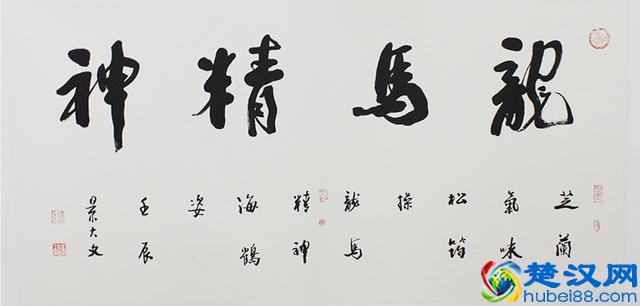 龍馬精神
芝蘭
氣味
松筠
操
龍馬
精神
海鶴
姿
壬辰
景大文
楚汉网
hubei88.com